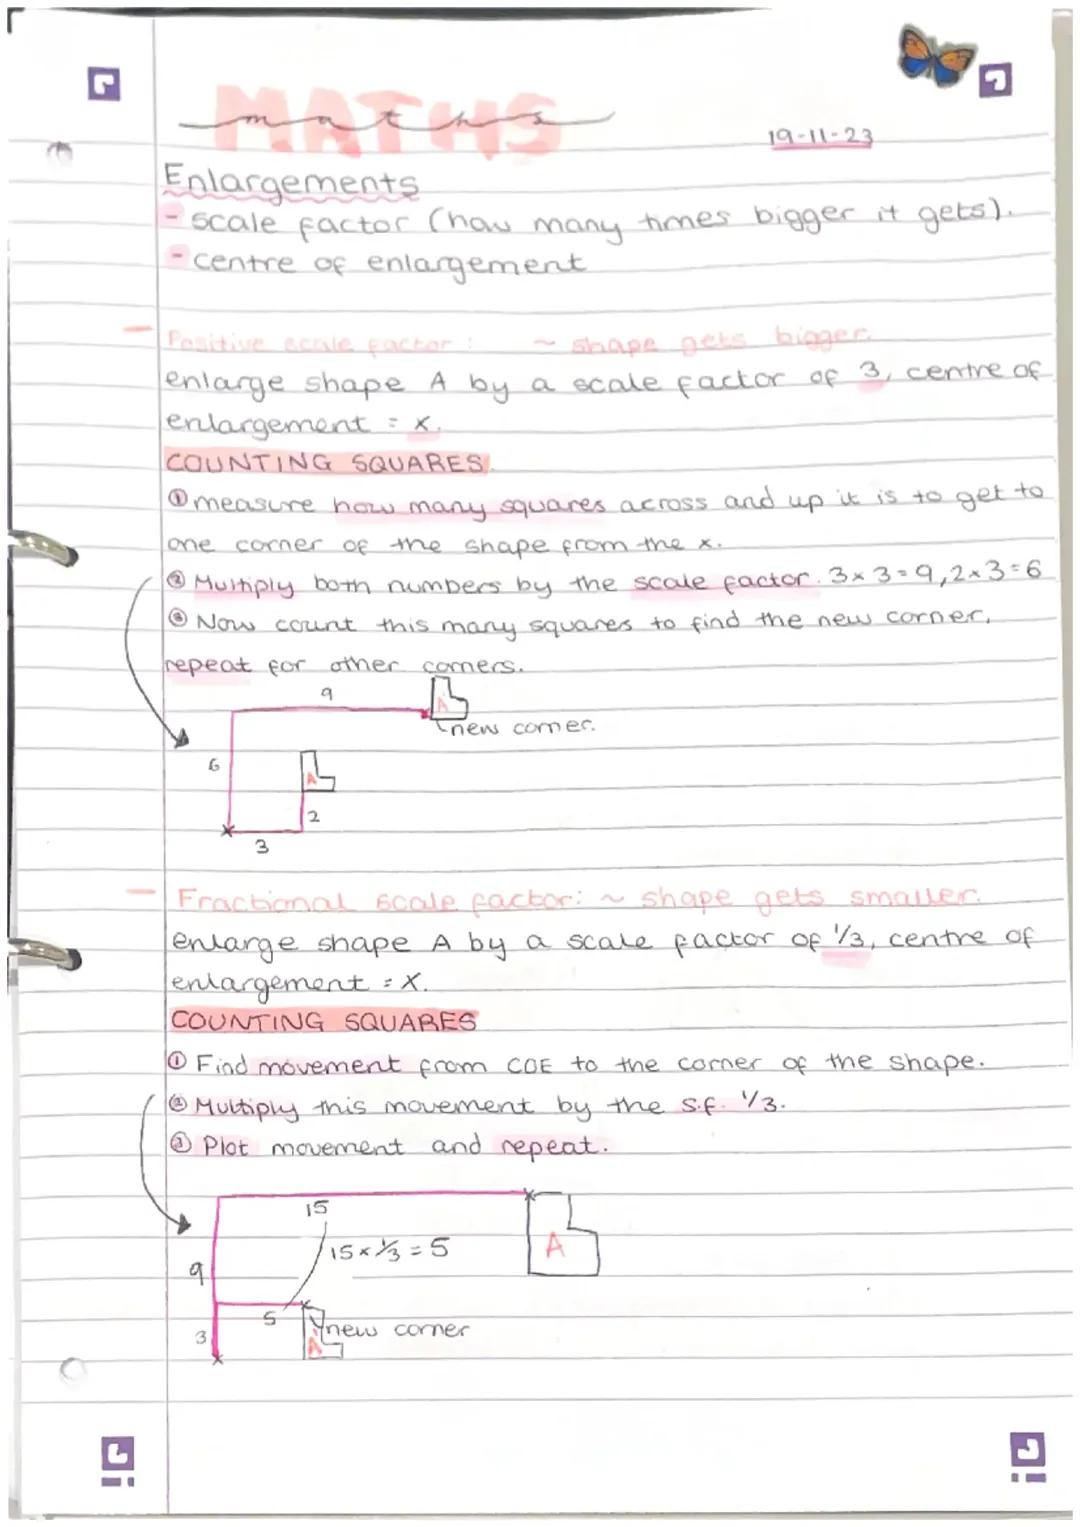 MATHS
maths
19-11-23
Enlargements
- scale factor (how many times bigger it gets).
- centre of enlargement
- Positive scale factor: ~ shape gets bigger.
enlarge shape A by a scale factor of 3, centre of
enlargement = x.
COUNTING SQUARES
① measure how many squares across and up it is to get to
one corner of the shape from the x.
② Multiply both numbers by the scale factor. 3×3=9, 2×3=6
③ Now count this many squares to find the new corner,
repeat for other corners.
9
A
new corner.
6
A
2
x
3
- Fractional scale factor: ~ shape gets smaller.
enlarge shape A by a scale factor of 1/3, centre of
enlargement = x.
COUNTING SQUARES
① Find movement from COE to the corner of the shape.
② Multiply this movement by the s.f. 1/3.
③ Plot movement and repeat.
x
15
15 × 1/3 = 5
A
9
5
x
new corner
3
A
x